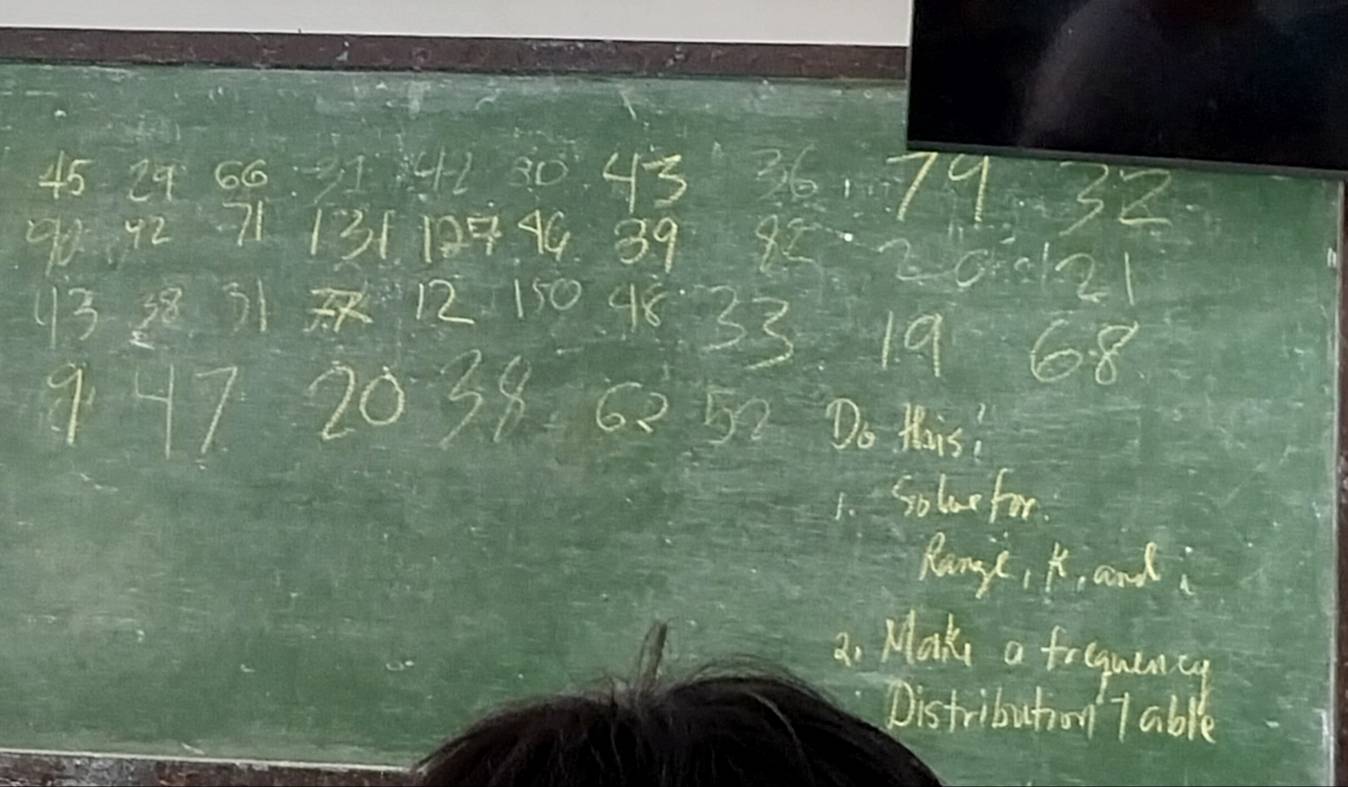 45 29 66 31 42 30 43 36 79 32
90 42 71 131 127 46 39 82 20 121
43 38 31 12 150 48 33 19 68
9 47 20 38 62 52
Do this:
1. Solve for
Range, K, and i
2. Make a frequency
Distribution Table